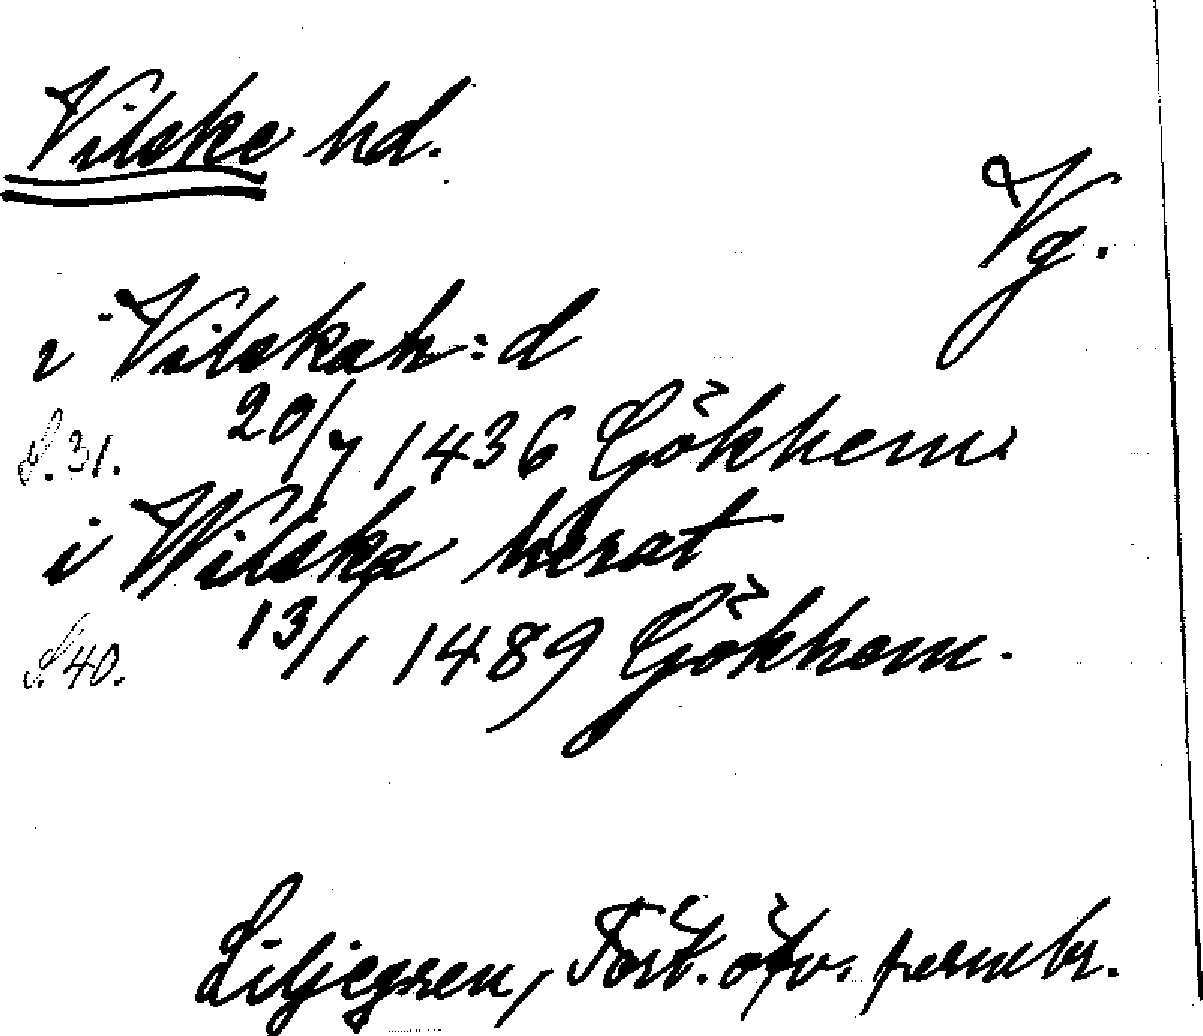 Vilske hd.
Vg.
i Vilskah:d
S. 31. 20/7 1436 Gökhem
i Wilska hérat
S. 40. 13/1 1489 Gökhem.
Liljegren, Fört. öfv. permbr.